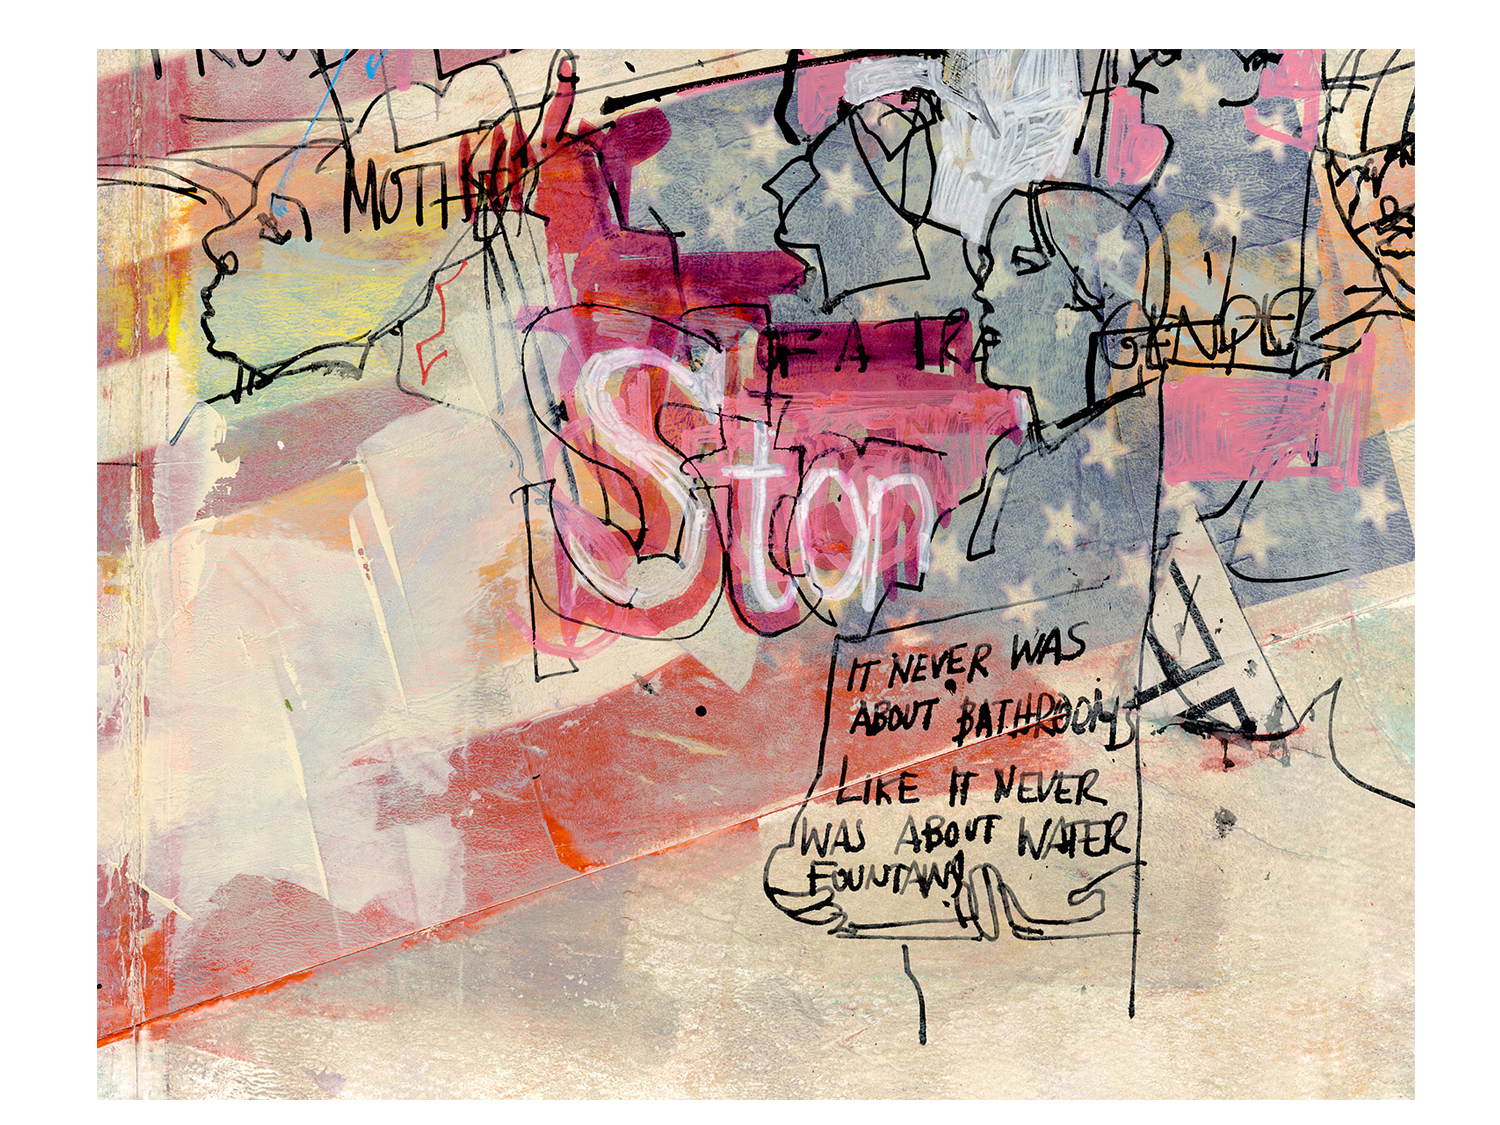 PROUD
MOTH
FAIR
GENDE
Ston
IT NEVER WAS
ABOUT BATHROOMS
LIKE IT NEVER
WAS ABOUT WATER
FOUNTAINS